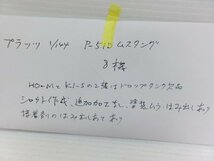 プラッツ 1/144 P-51D ムスタング
8機
HO-M と K1-S の2機はドロップタンク欠品
シャドウ作成、追加加工無し、塗装ムラ、はみ出し有り
接着剤のはみ出しあて有り